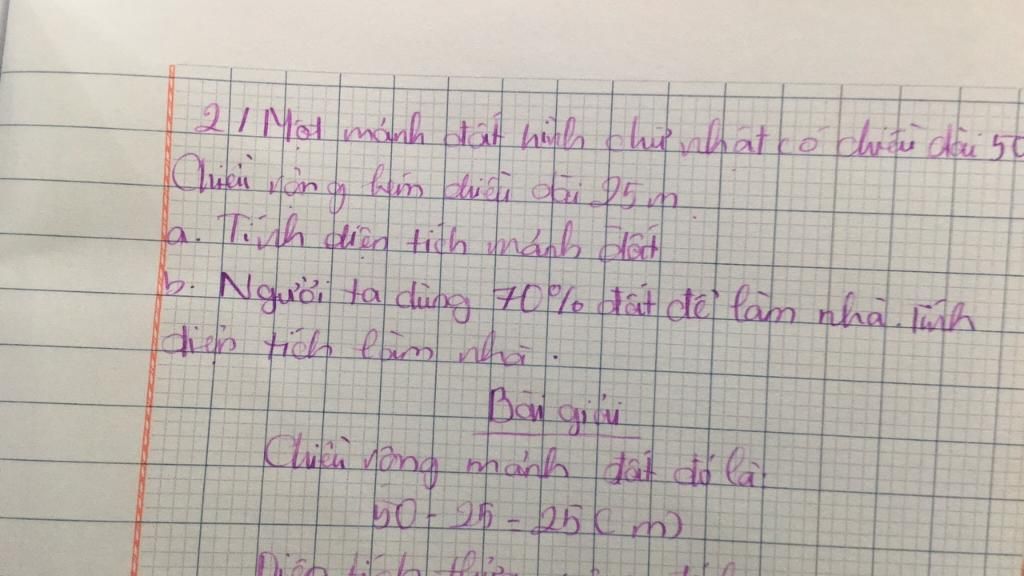 2 / Một mảnh đất hình chữ nhật có chiều dài 50
Chiều rộng kém chiều dài 25 m.
a. Tính diện tích mảnh đất
b. Người ta dùng 70% đất để làm nhà. Tính
diện tích làm nhà.
Bài giải
Chiều rộng mảnh đất đó là
50 - 25 = 25 ( m )
Diện tích